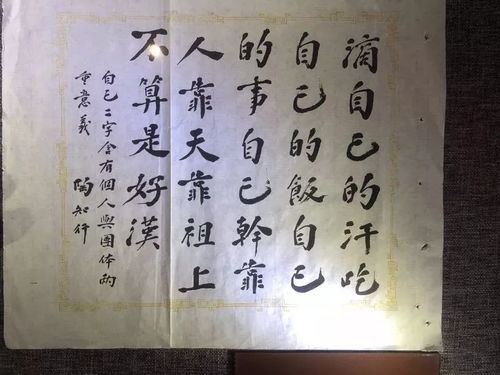 滴自己的汗吃
自己的飯自己
的事自己幹靠
人靠天靠祖上
不算是好漢
自己二字含有個人與團体兩
重意義 陶知行